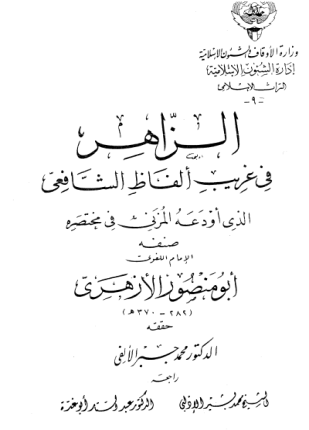 وزارة الأوقاف والشئون الإسلامية
إدارة الشئون الإسلامية
التراث الإسلامى
-٩-
الزاهر
فى غريب ألفاظ الشافعى
الذى أودعه المزنى فى مختصره
صنفه
الإمام اللغوى
أبو منصور الأزهرى
(٢٨٢ - ٣٧٠ هـ)
حققه
الدكتور محمد جبر الألفى
راجعه
الشيخ محمد بشير الإدلبى الدكتور عبد الستار أبو غدة